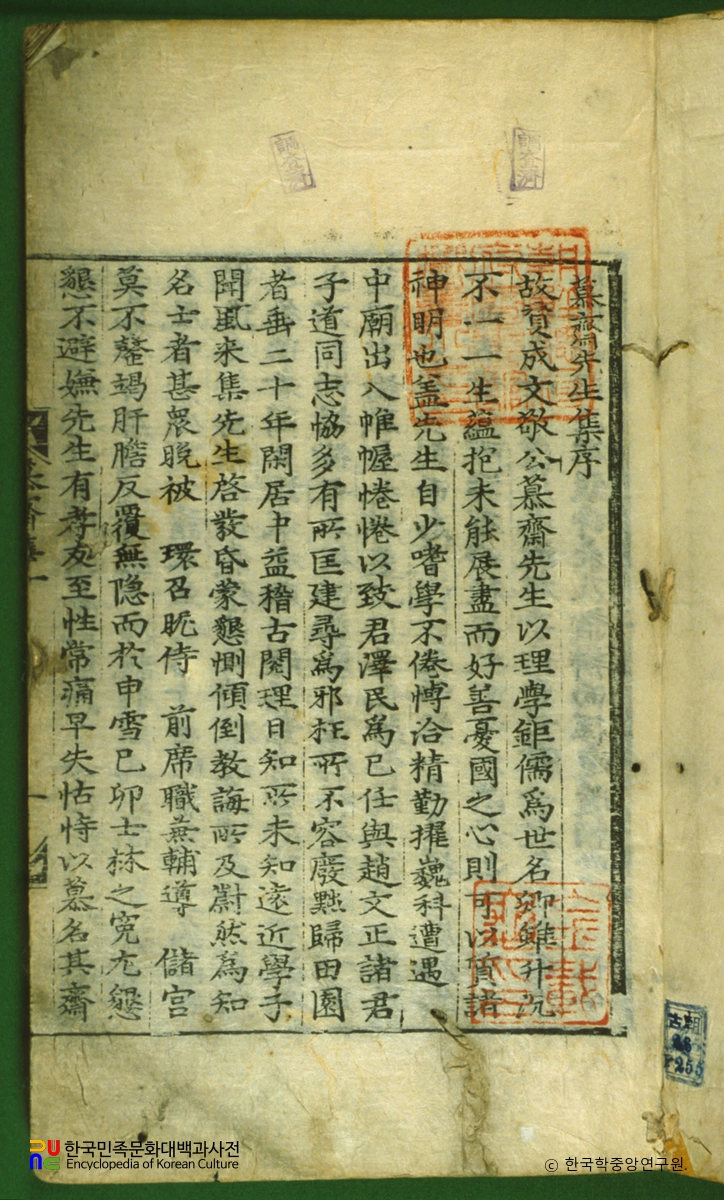 慕齋先生集序
故贊成文敬公慕齋先生以理學鉅儒爲世名卿雖升沉
不一一生蘊抱未能展盡而好善憂國之心則可以質諸
神明也盖先生自少嗜學不倦愽洽精勤擢巍科遭遇
中廟出入帷幄惓惓以致君澤民爲己任與趙文正諸君
子道同志恊多有所匡建尋爲邪枉所不容廢黜歸田園
者垂二十年閑居中益稽古閱理日知所未知遠近學子
聞風来集先生啓發昏蒙懇惻傾倒教誨所及蔚然爲知
名士者甚衆晩被 環召昵侍 前席職兼輔導 儲宮
莫不罄竭肝膽反覆無隐而於申雪己卯士林之冤尤懇
懇不避嫌先生有孝友至性常痛早失怙恃以慕名其齋
調查濟
調查濟
古朝
255
한국민족문화대백과사전
Encyclopedia of Korean Culture
© 한국학중앙연구원.